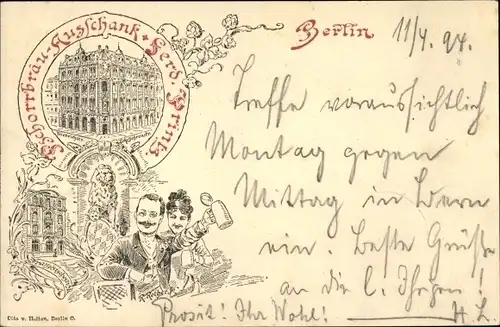 Pschorrbräu-Ausschank • Ferd. Printz.
Berlin 11/4. 94.
Treffe voraussichtlich
Montag gegen
Mittag in Wern
ein. Beste Grüße
an die l. Ihrigen!
Prosit! Ihr Wohl! H. L.
Berlin S.